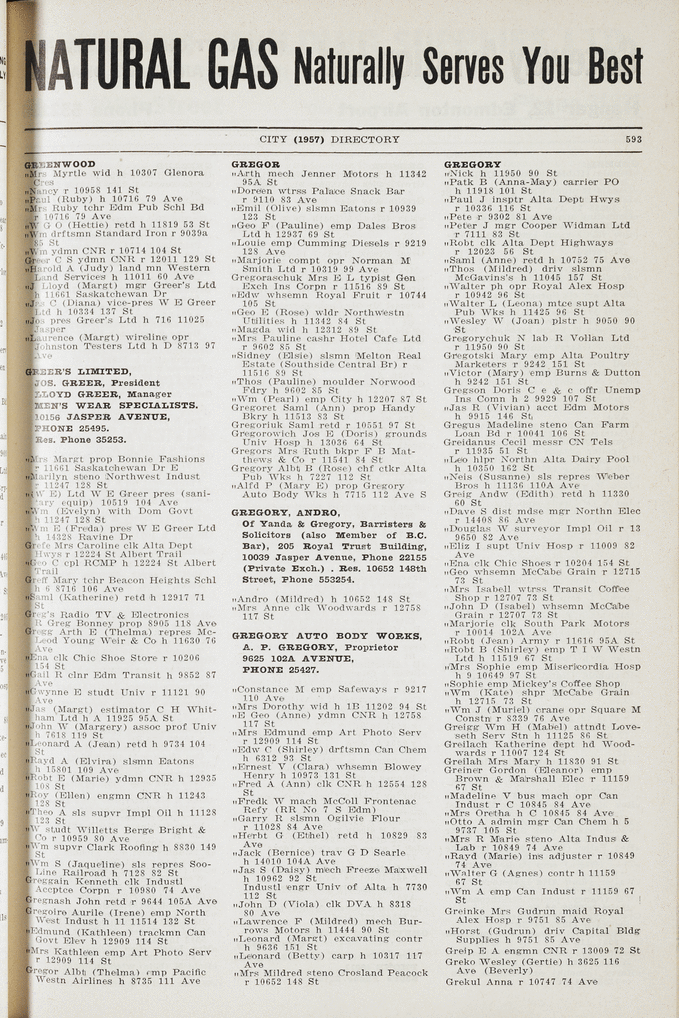 NATURAL GAS Naturally Serves You Best
CITY (1957) DIRECTORY 593
GREENWOOD
„Mrs Myrtle wid h 10307 Glenora
Cres
„Nancy r 10958 141 St
„Paul (Ruby) h 10716 79 Ave
„Mrs Ruby tchr Edm Pub Schl Bd
r 10716 79 Ave
„W G O (Hettie) retd h 11819 53 St
„Wm drftsmn Standard Iron r 9039a
85 St
„Wm ydmn CNR r 10714 104 St
Greer C S ydmn CNR r 12011 129 St
„Harold A (Judy) land mn Western
Land Services h 11011 60 Ave
„J Lloyd (Margt) mgr Greer's Ltd
h 11661 Saskatchewan Dr
„Jas C (Diana) vice-pres W E Greer
Ltd h 10334 137 St
„Jos pres Greer's Ltd h 716 11025
Jasper
„Laurence (Margt) wireline opr
Johnston Testers Ltd h D 8713 97
Ave
GREER'S LIMITED,
JOS. GREER, President
LLOYD GREER, Manager
MEN'S WEAR SPECIALISTS.
10156 JASPER AVENUE,
PHONE 25495.
Res. Phone 35253.
„Mrs Margt prop Bonnie Fashions
r 11661 Saskatchewan Dr E
„Marilyn steno Northwest Indust
r 11247 128 St
„(W E) Ltd W E Greer pres (sani-
tary equip) 10519 104 Ave
„Wm (Evelyn) with Dom Govt
h 11247 128 St
„Wm E (Freda) pres W E Greer Ltd
h 14328 Ravine Dr
Grefe Mrs Caroline clk Alta Dept
Hwys r 12224 St Albert Trail
„Geo C cpl RCMP h 12224 St Albert
Trail
Greff Mary tchr Beacon Heights Schl
h 6 8716 106 Ave
„Saml (Katherine) retd h 12917 71
St
Greg's Radio TV & Electronics
R Greg Bonney prop 8905 118 Ave
Gregg Arth E (Thelma) repres Mc-
Leod Young Weir & Co h 11630 76
Ave
„Ena clk Chic Shoe Store r 10206
154 St
„Gail R clnr Edm Transit h 9852 87
Ave
„Gwynne E studt Univ r 11121 90
Ave
„Jas (Margt) estimator C H Whit-
ham Ltd h A 11925 95A St
„John W (Margery) assoc prof Univ
h 7618 119 St
„Leonard A (Jean) retd h 9734 104
St
„Rayd A (Elvira) slsmn Eatons
h 15801 109 Ave
„Robt E (Marie) ydmn CNR h 12935
108 St
„Roy (Ellen) engmn CNR h 11243
128 St
„Theo A sls supvr Impl Oil h 11128
123 St
„W studt Willets Berge Bright &
Co r 10959 80 Ave
„Wm supvr Clark Roofing h 8830 149
St
„Wm S (Jaqueline) sls repres Soo-
Line Railroad h 7128 82 St
Greggain Kenneth clk Industl
Accptce Corpn r 10980 74 Ave
Gregnash John retd r 9644 105A Ave
Gregoire Aurile (Irene) emp North
West Indust h 11 11514 132 St
„Edmund (Kathleen) trackmn Can
Govt Elev h 12909 114 St
„Mrs Kathleen emp Art Photo Serv
r 12909 114 St
Gregor Albt (Thelma) emp Pacific
Westn Airlines h 8735 111 Ave
GREGOR
„Arth mech Jenner Motors h 11342
95A St
„Doreen wtrss Palace Snack Bar
r 9110 83 Ave
„Emil (Olive) slsmn Eatons r 10939
123 St
„Geo F (Pauline) emp Dales Bros
Ltd h 12937 69 St
„Louie emp Cumming Diesels r 9219
128 Ave
„Marjorie compt opr Norman M
Smith Ltd r 10319 99 Ave
Gregoraschuk Mrs E L typist Gen
Exch Ins Corpn r 11516 89 St
„Edw whsemn Royal Fruit r 10744
105 St
„Geo E (Rose) wldr Northwestn
Utilities h 11342 84 St
„Magda wid h 12312 89 St
„Mrs Pauline cashr Hotel Cafe Ltd
r 9602 85 St
„Sidney (Elsie) slsmn Melton Real
Estate (Southside Central Br) r
11516 89 St
„Thos (Pauline) moulder Norwood
Fdry h 9602 85 St
„Wm (Pearl) emp City h 12207 87 St
Gregoret Saml (Ann) prop Handy
Bkry h 11513 83 St
Gregoriuk Saml retd r 10551 97 St
Gregorowich Jos E (Doris) grounds
Univ Hosp h 13036 64 St
Gregors Mrs Ruth bkpr F B Mat-
thews & Co r 11541 84 St
Gregory Albt B (Rose) chf ctkr Alta
Pub Wks h 7227 112 St
„Alfd P (Mary E) prop Gregory
Auto Body Wks h 7715 112 Ave S
GREGORY, ANDRO,
Of Yanda & Gregory, Barristers &
Solicitors (also Member of B.C.
Bar), 205 Royal Trust Building,
10039 Jasper Avenue, Phone 22155
(Private Exch.) . Res. 10652 148th
Street, Phone 553254.
„Andro (Mildred) h 10652 148 St
„Mrs Anne clk Woodwards r 12758
117 St
GREGORY AUTO BODY WORKS,
A. P. GREGORY, Proprietor
9625 102A AVENUE,
PHONE 25427.
„Constance M emp Safeways r 9217
110 Ave
„Mrs Dorothy wid h 1B 11202 94 St
„E Geo (Anne) ydmn CNR h 12758
117 St
„Mrs Edmund emp Art Photo Serv
r 12909 114 St
„Edw C (Shirley) drftsmn Can Chem
h 6312 93 St
„Ernest V (Clara) whsemn Blowey
Henry h 10973 131 St
„Fred A (Ann) clk CNR h 12554 128
St
„Fredk W mach McColl Frontenac
Refy (RR No 7 S Edm)
„Garry R slsmn Ogilvie Flour
r 11028 84 Ave
„Herbt G (Ethel) retd h 10829 83
Ave
„Jack (Bernice) trav G D Searle
h 14010 104A Ave
„Jas S (Daisy) mech Freeze Maxwell
h 10962 92 St
Industl engr Univ of Alta h 7730
112 St
„John D (Viola) clk DVA h 8318
80 Ave
„Lawrence F (Mildred) mech Bur-
rows Motors h 11444 90 St
„Leonard (Margt) excavating contr
h 9636 151 St
„Leonard (Betty) carp h 10317 117
Ave
„Mrs Mildred steno Crosland Peacock
r 10652 148 St
GREGORY
„Nick h 11950 90 St
„Patk B (Anna-May) carrier PO
h 11918 101 St
„Paul J insptr Alta Dept Hwys
r 10336 116 St
„Pete r 9302 81 Ave
„Peter J mgr Cooper Widman Ltd
r 7111 83 St
„Robt clk Alta Dept Highways
r 12023 56 St
„Saml (Anne) retd h 10752 75 Ave
„Thos (Mildred) driv slsmn
McGavin's h 11045 157 St
„Walter ph opr Royal Alex Hosp
r 10942 96 St
„Walter L (Leona) mtce supt Alta
Pub Wks h 11425 96 St
„Wesley W (Joan) plstr h 9050 90
St
Gregorychuk N lab R Vollan Ltd
r 11950 90 St
Gregotski Mary emp Alta Poultry
Marketers r 9242 151 St
„Victor (Mary) emp Burns & Dutton
h 9242 151 St
Gregson Doris C e & c offr Unemp
Ins Comn h 2 9929 107 St
„Jas R (Vivian) acct Edm Motors
h 9915 146 St
Gregus Madeline steno Can Farm
Loan Bd r 10041 106 St
Greidanus Cecil messr CN Tels
r 11935 51 St
„Leo hlpr Northn Alta Dairy Pool
h 10350 162 St
„Neis (Susanne) sls repres Weber
Bros h 11136 110A Ave
Greig Andw (Edith) retd h 11330
60 St
„Dave S dist mdse mgr Northn Elec
r 14408 86 Ave
„Douglas W surveyor Impl Oil r 13
9650 82 Ave
„Eliz I supt Univ Hosp r 11009 82
Ave
„Ena clk Chic Shoes r 10204 154 St
„Geo whsemn McCabe Grain r 12715
73 St
„Mrs Isabell wtrss Transit Coffee
Shop r 12707 73 St
„John D (Isabel) whsemn McCabe
Grain r 12707 73 St
„Marjorie clk South Park Motors
r 10014 102A Ave
„Robt (Jean) Army r 11616 95A St
„Robt B (Shirley) emp T I W Westn
Ltd h 11519 67 St
„Mrs Sophie emp Misericordia Hosp
h 9 10649 97 St
„Sophie emp Mickey's Coffee Shop
„Wm (Kate) shpr McCabe Grain
h 12715 73 St
„Wm J (Muriel) crane opr Square M
Constn r 8339 76 Ave
Greigg Wm H (Mabel) attndt Love-
seth Serv Stn h 11125 86 St
Greilach Katherine dept hd Wood-
wards r 11007 124 St
Greilah Mrs Mary h 11830 91 St
Greiner Gordon (Eleanor) emp
Brown & Marshall Elec r 11159
67 St
„Madeline V bus mach opr Can
Indust r C 10845 84 Ave
„Mrs Oretha h C 10845 84 Ave
„Otto A admin mgr Can Chem h 5
9737 105 St
„Mrs R Marie steno Alta Indus &
Lab r 10849 74 Ave
„Rayd (Marie) ins adjuster r 10849
74 Ave
„Walter G (Agnes) contr h 11159
67 St
„Wm A emp Can Indust r 11159 67
St
Greinke Mrs Gudrun maid Royal
Alex Hosp r 9751 85 Ave
„Horst (Gudrun) driv Capital Bldg
Supplies h 9751 85 Ave
Greip E A engmn CNR r 13009 72 St
Greko Wesley (Gertie) h 3625 116
Ave (Beverly)
Grekul Anna r 10747 74 Ave